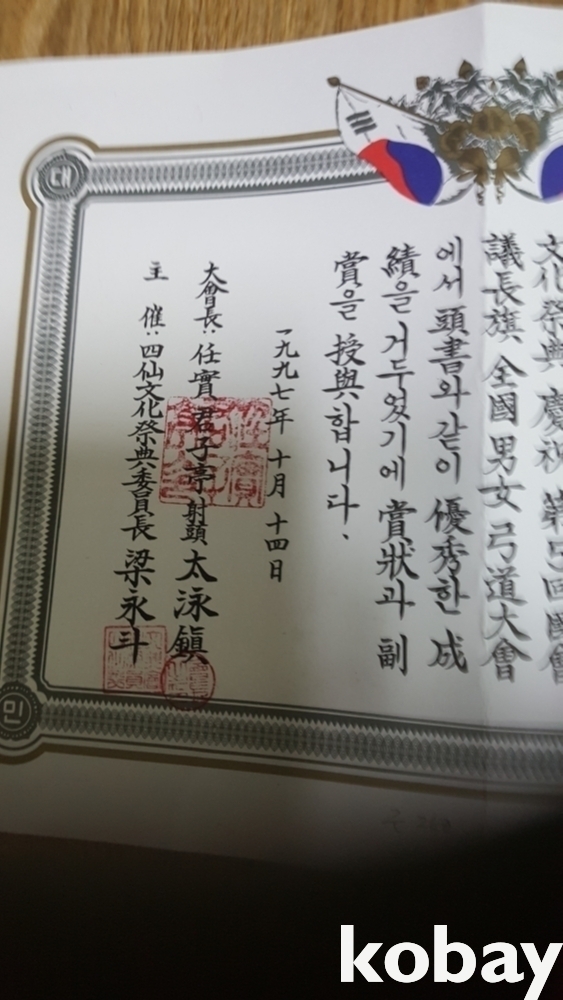 文化祭典 慶祝 第 回國會
議長旗 全國 男女 弓道大會
에서 頭書와같이 優秀한 成
績을 거두었기에 賞狀과 副
賞을 授與합니다.
一九九七年 十月 十四日
大會長: 任實 君子亭 射頭 太泳鎭
主 催: 四仙文化祭典委員長 梁永斗
대
민
kobay